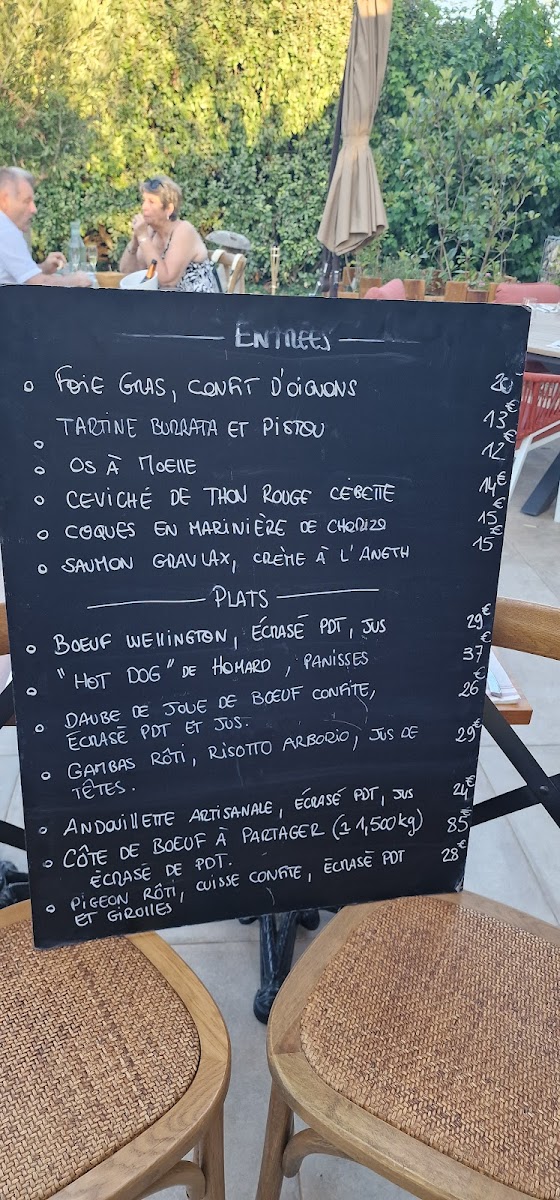 ENTRÉES
FOIE GRAS, CONFIT D'OIGNONS 20
TARTINE BURRATA ET PISTOU 13€
OS À MOELLE 12€
CEVICHÉ DE THON ROUGE CÉBETTE 14€
COQUES EN MARINIÈRE DE CHORIZO 15€
SAUMON GRAVLAX, CRÈME À L'ANETH 15€
PLATS
BOEUF WELLINGTON, ÉCRASÉ PDT, JUS 29€
"HOT DOG" DE HOMARD, PANISSES 37€
DAUBE DE JOUE DE BOEUF CONFITE, 26€
ÉCRASÉ PDT ET JUS.
GAMBAS RÔTI, RISOTTO ARBORIO, JUS DE 29€
TÊTES.
ANDOUILLETTE ARTISANALE, ÉCRASÉ PDT, JUS 24€
CÔTE DE BOEUF À PARTAGER (± 1,500kg) 85€
ÉCRASÉ DE PDT.
PIGEON RÔTI, CUISSE CONFITE, ÉCRASÉ PDT 28€
ET GIROLLES